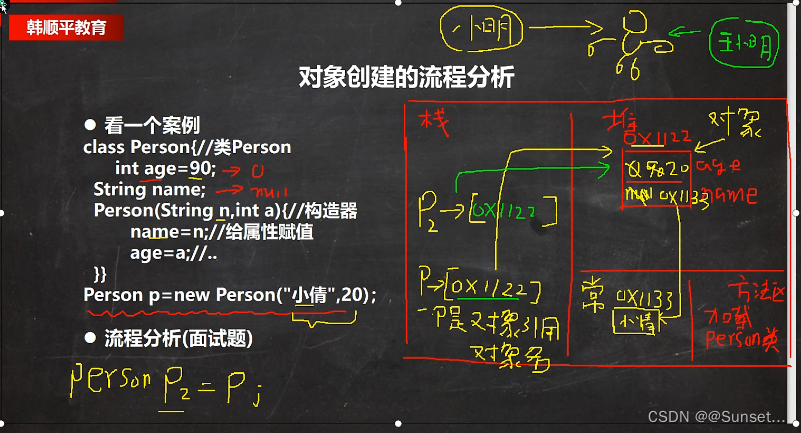 韩顺平教育
小明
王小明
对象创建的流程分析
● 看一个案例
class Person{//类Person
int age=90; → 0
String name; → null
Person(String n,int a){//构造器
name=n;//给属性赋值
age=a;//..
}}
Person p=new Person("小倩",20);
● 流程分析(面试题)
Person P2 = P;
栈
P2→[0X1122]
P→[0X1122]
P是对象引用
对象名
堆
对象
0X1122
20 age
null 0X1133 name
常
0X1133
小倩
方法区
加载
Person类
CSDN @@Sunset...